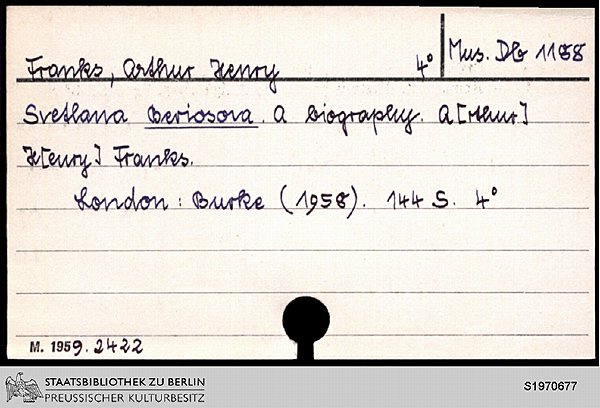 Franks, Arthur Henry 4° Mus. Db 1158
Svetlana Beriosova. A biography. A[rthur]
H[enry] Franks.
London: Burke (1958). 144 S. 4°
M. 1959. 2422
STAATSBIBLIOTHEK ZU BERLIN
PREUSSISCHER KULTURBESITZ
S1970677